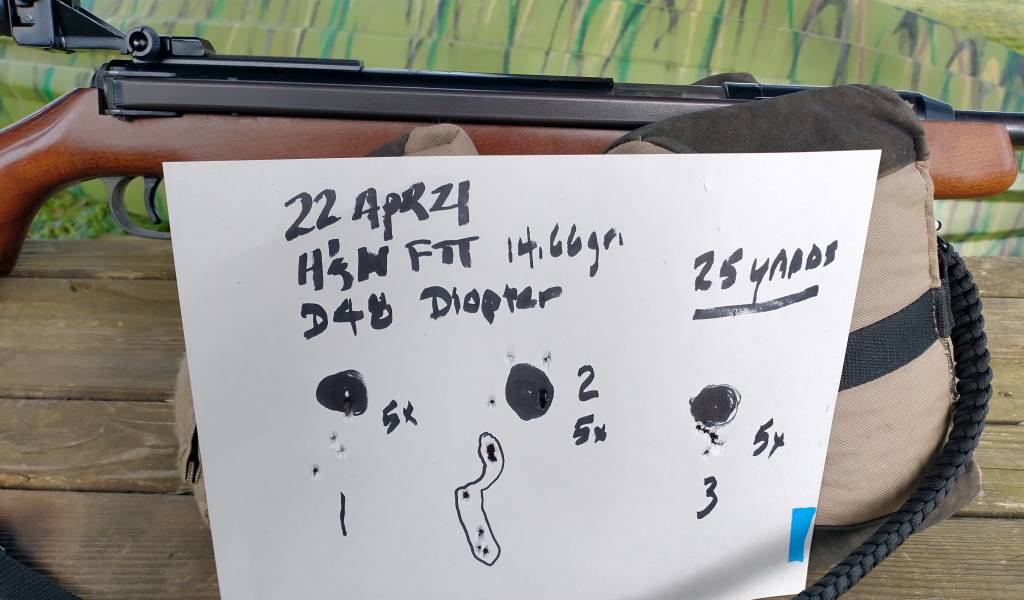 22 APR 21
H&N FTT 14.66gr.
D48 Diopter
25 YARDS
5x
2
5x
5x
1
3